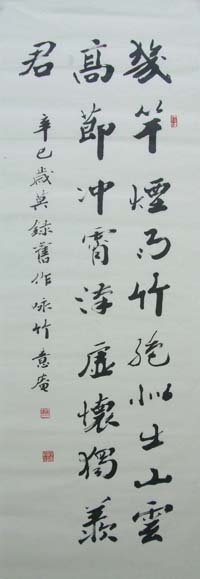 几竿煙雨竹絕似出山雲
高節冲霄漢虛懷獨羨
君
辛巳歲英錄舊作咏竹意庵